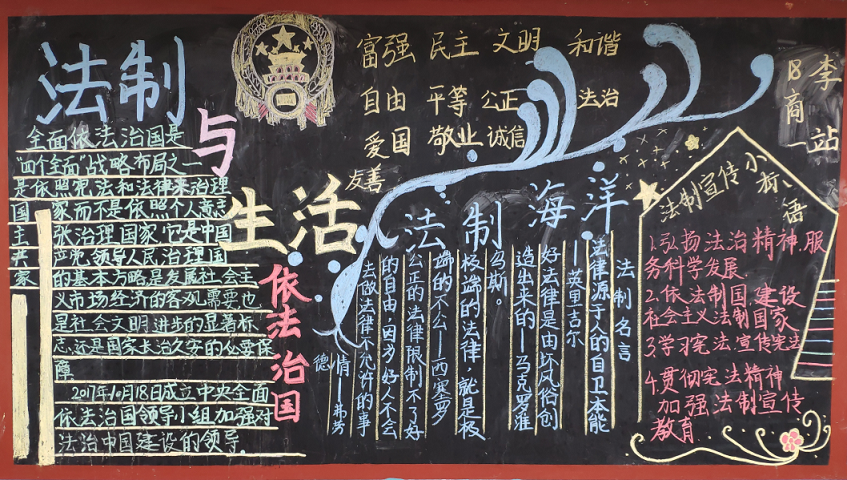 法制
与
生活
富强 民主 文明 和谐
自由 平等 公正 法治
爱国 敬业 诚信
友善
18商一
李站
全面依法治国是
"四个全面"战略布局之一
是依照宪法和法律来治理
国家而不是依照个人意志
主张治理国家它是中国
共产党领导人民治理国
家的基本方略是发展社会主
义市场经济的客观需要也
是社会文明进步的显著标
志还是国家长治久安的必要保
障
2017年10月18日成立中央全面
依法治国领导小组加强对
法治中国建设的领导.
依法治国
法制海洋
法制名言
法律源于人的自卫本能
——英里吉尔
好法律是由坏风俗创
造出来的——马克罗维
乌斯。
极端的法律,就是极
端的不公——西塞罗
公正的法律限制不了好
的自由,因为好人不会
去做法律不允许的事
情——弗劳
德
法制宣传小标语
1.弘扬法治精神.服
务科学发展
2.依法制国.建设
社会主义法制国家
3.学习宪法.宣传宪法
4.贯彻宪法精神
加强法制宣传
教育